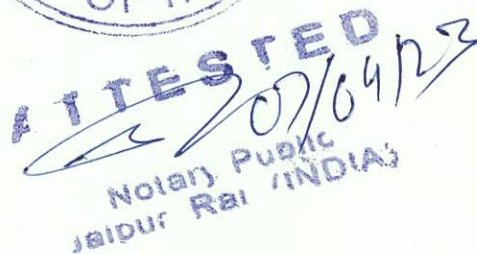 ATTESTED
07/04/23
Notary Public
Jaipur Raj (INDIA)